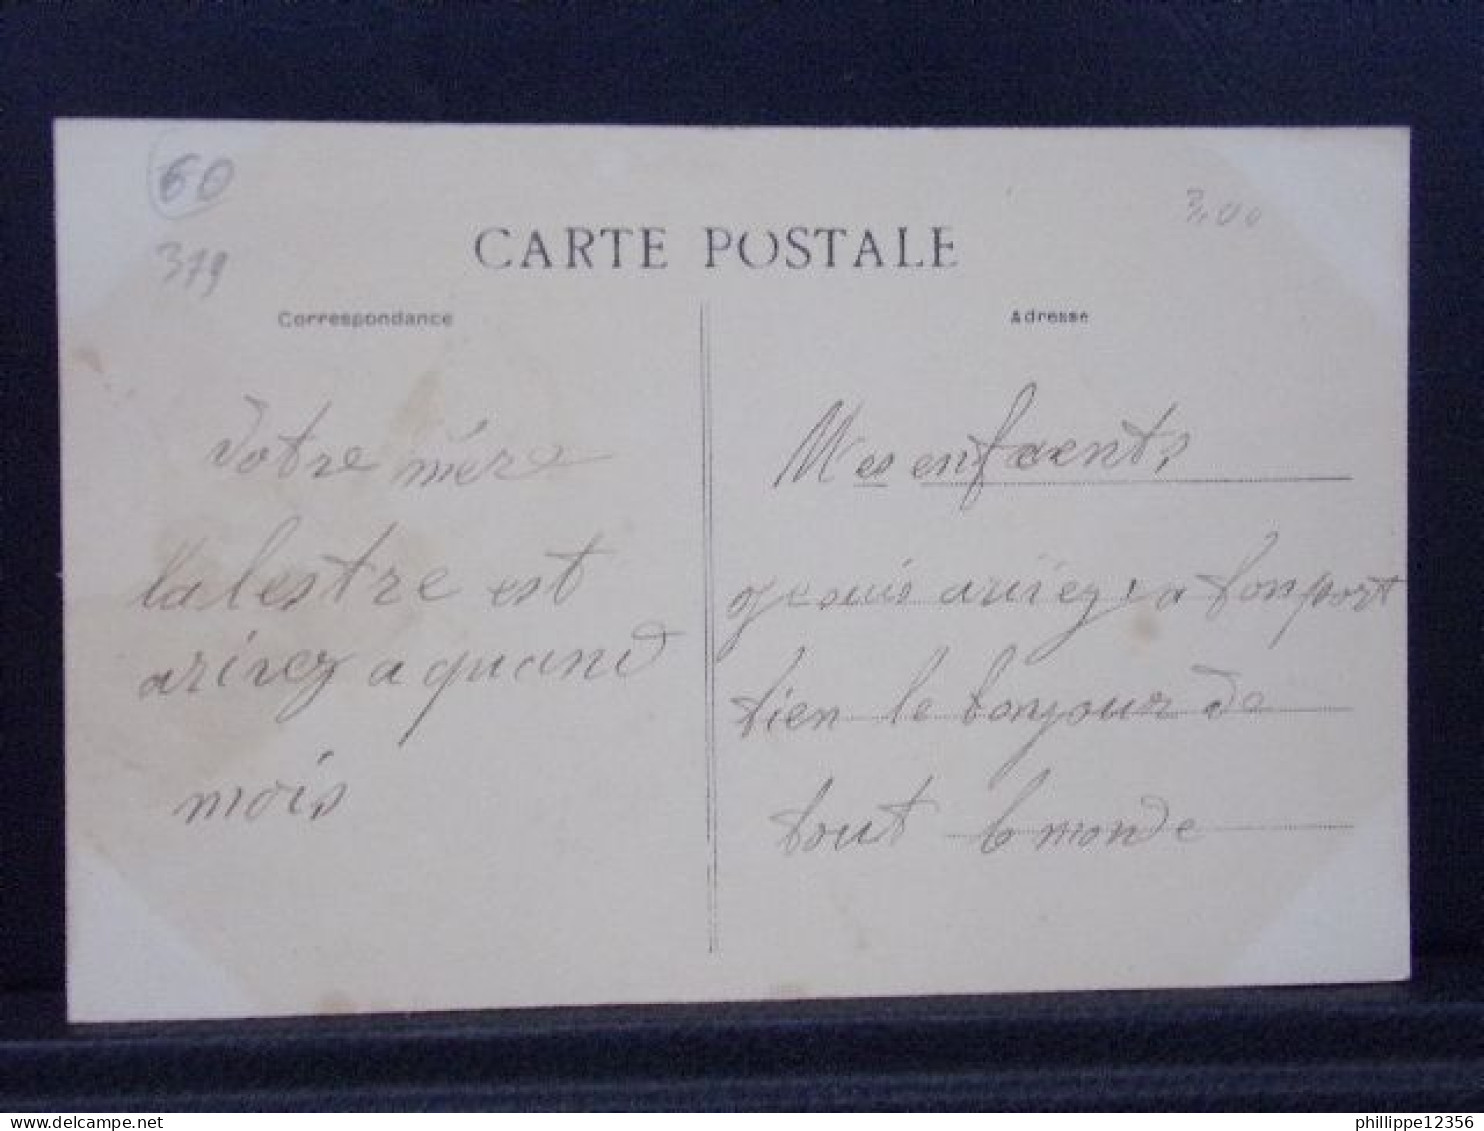 60
379
3,00
CARTE POSTALE
Correspondance
Adresse
Votre mère
Valestre est
arivez a quand
mois
Mes enfaents
je suis arivez a bon port
bien le bonjour de
tout le monde
phillippe12356